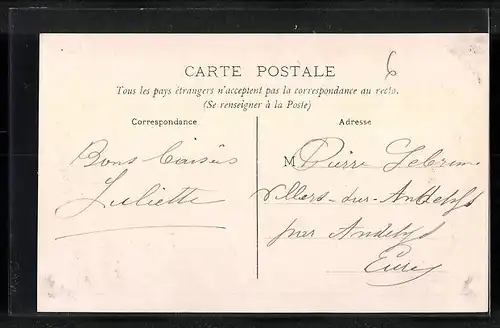 6
CARTE POSTALE
Tous les pays étrangers n'acceptent pas la correspondance au recto.
(Se renseigner à la Poste)
Correspondance
Adresse
Bons baisers
Juliette
M Pierre Lebrun
Villers-sur-Andelys
par Andelys
Eure